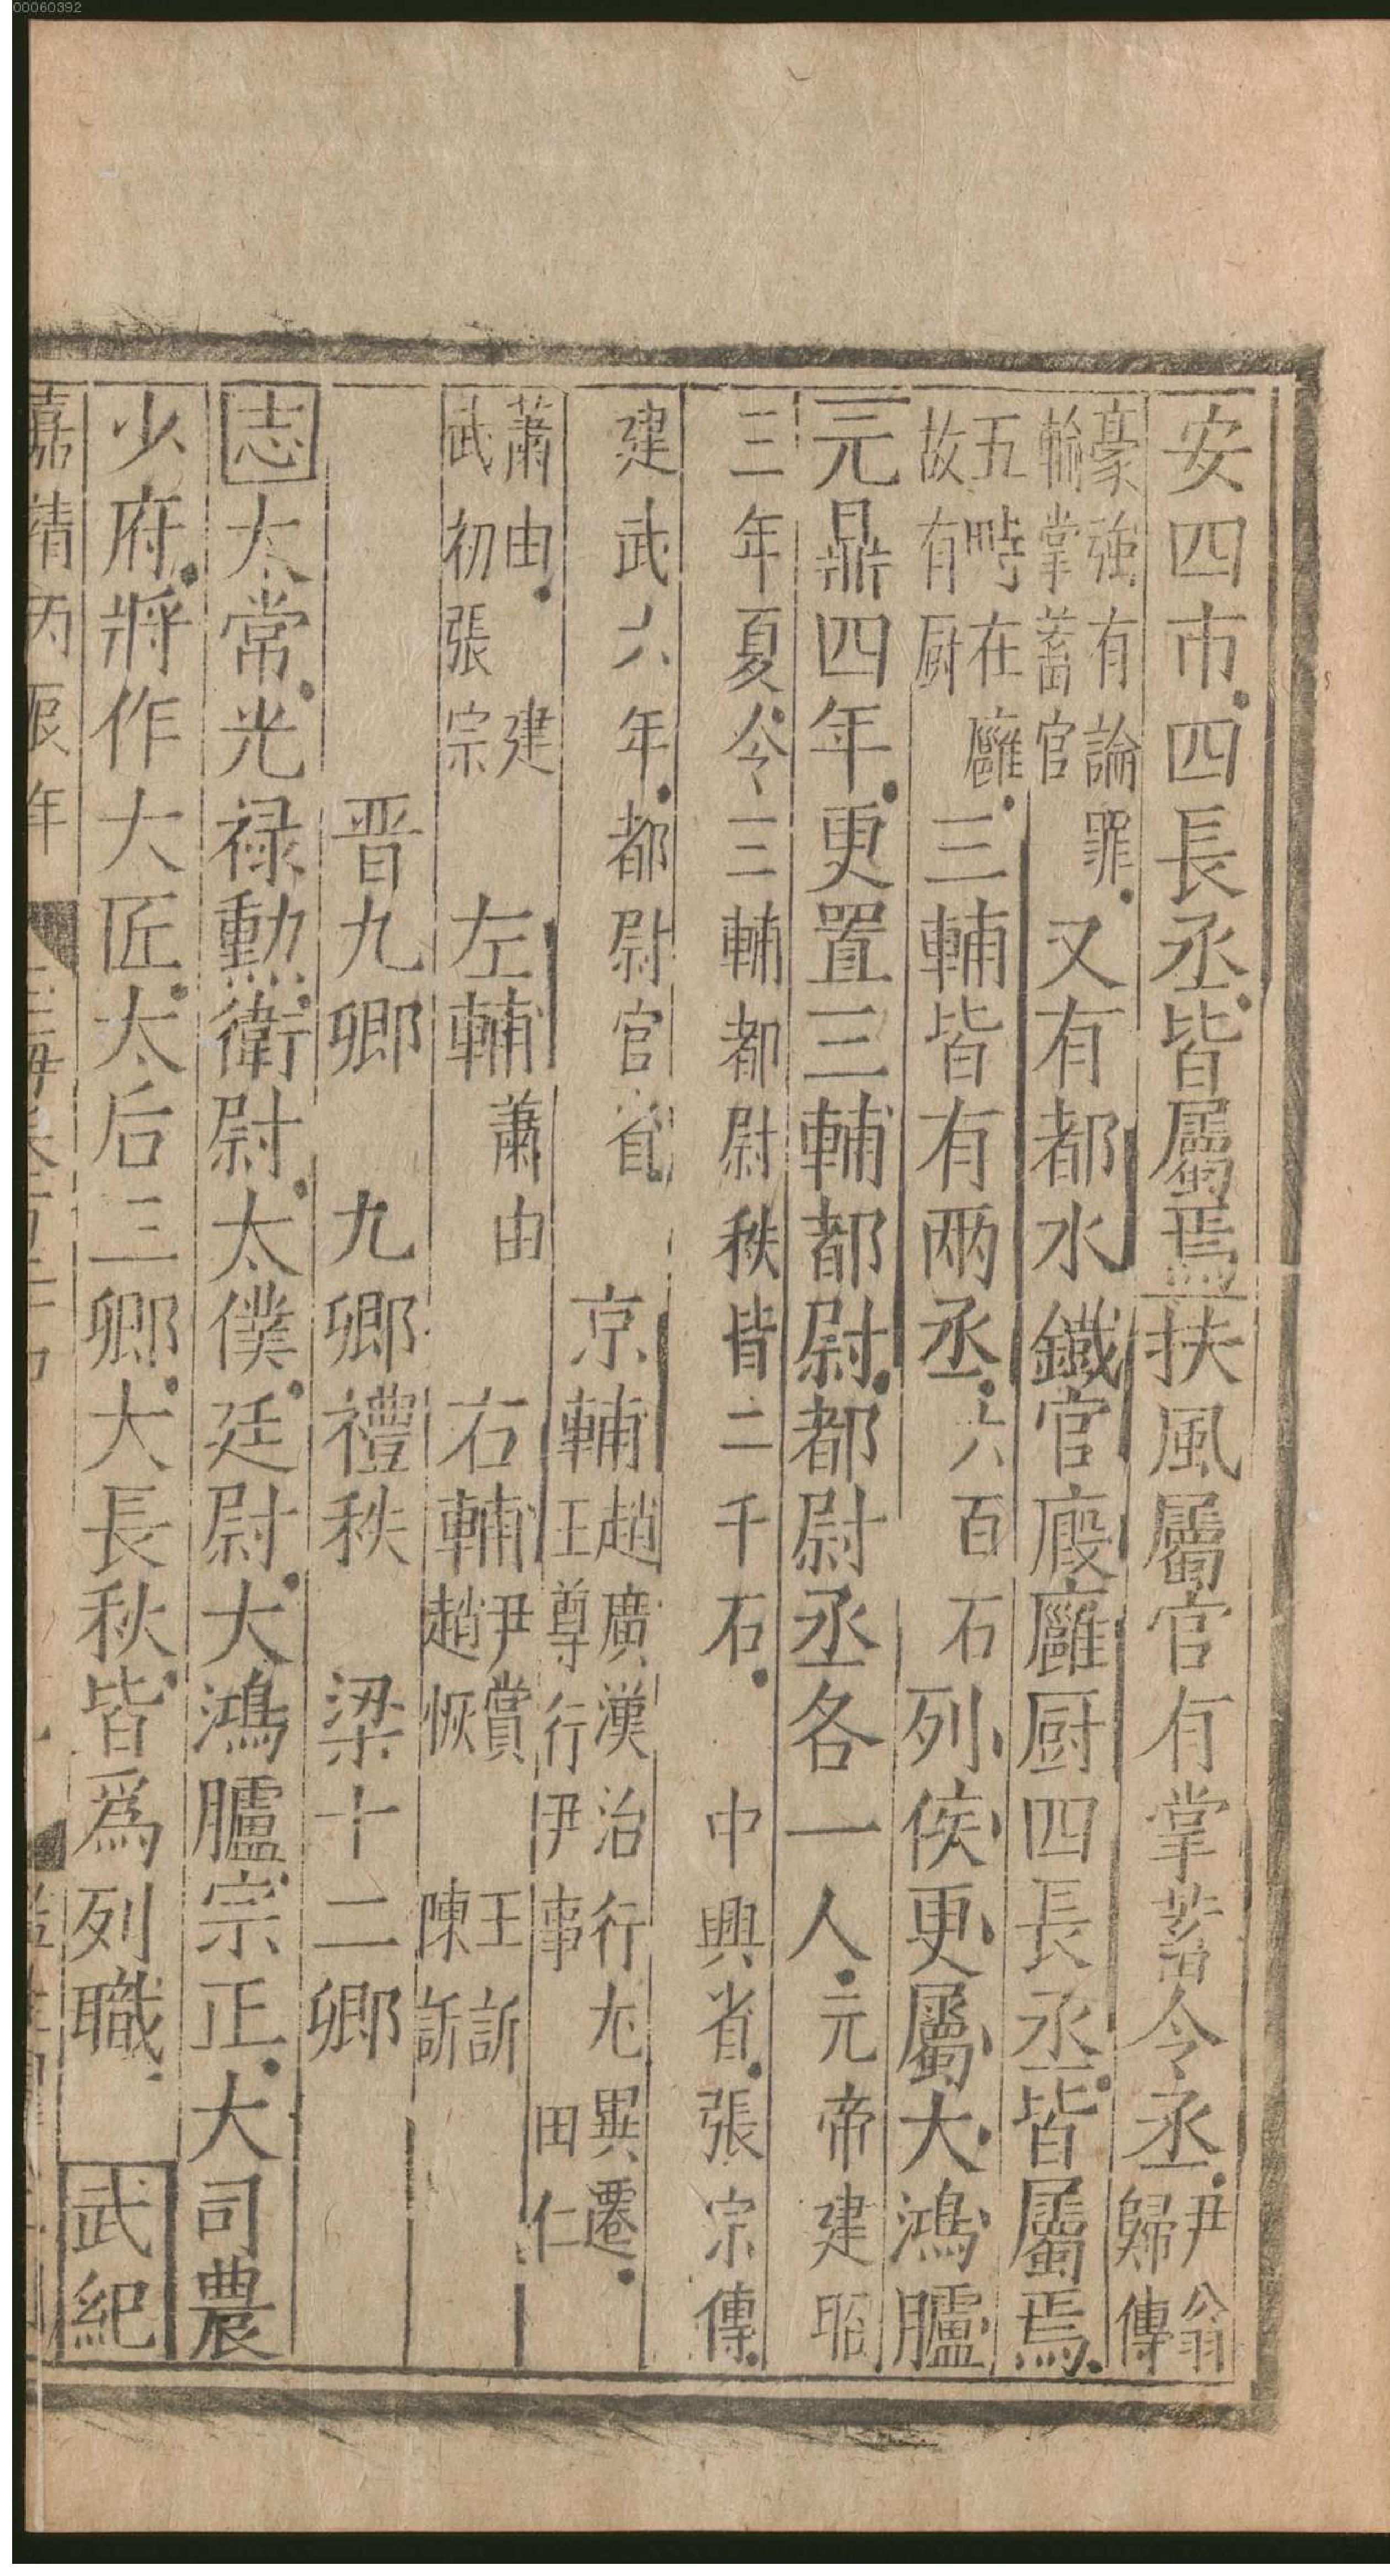 00060392
安四市四長丞皆屬焉扶風屬官有掌畜令丞尹翁歸傳
豪強有論罪輸掌蓄官又有都水鐵官廄廱厨四長丞皆屬焉
五畤在廱故有厨三輔皆有兩丞六百石列侯更屬大鴻臚
元鼎四年更置三輔都尉都尉丞各一人元帝建昭
三年夏令三輔都尉秩皆二千石中興省張宗傳
建武六年都尉官省京輔趙廣漢治行尤異遷王尊行伊事田仁
蕭由建武初張宗左輔蕭由右輔尹賞趙恢王訢陳訢
晋九卿九卿禮秩梁十二卿
志太常光禄勳衛尉太僕廷尉大鴻臚宗正大司農
少府將作大匠太后三卿大長秋皆爲列職武紀
嘉靖丙辰年